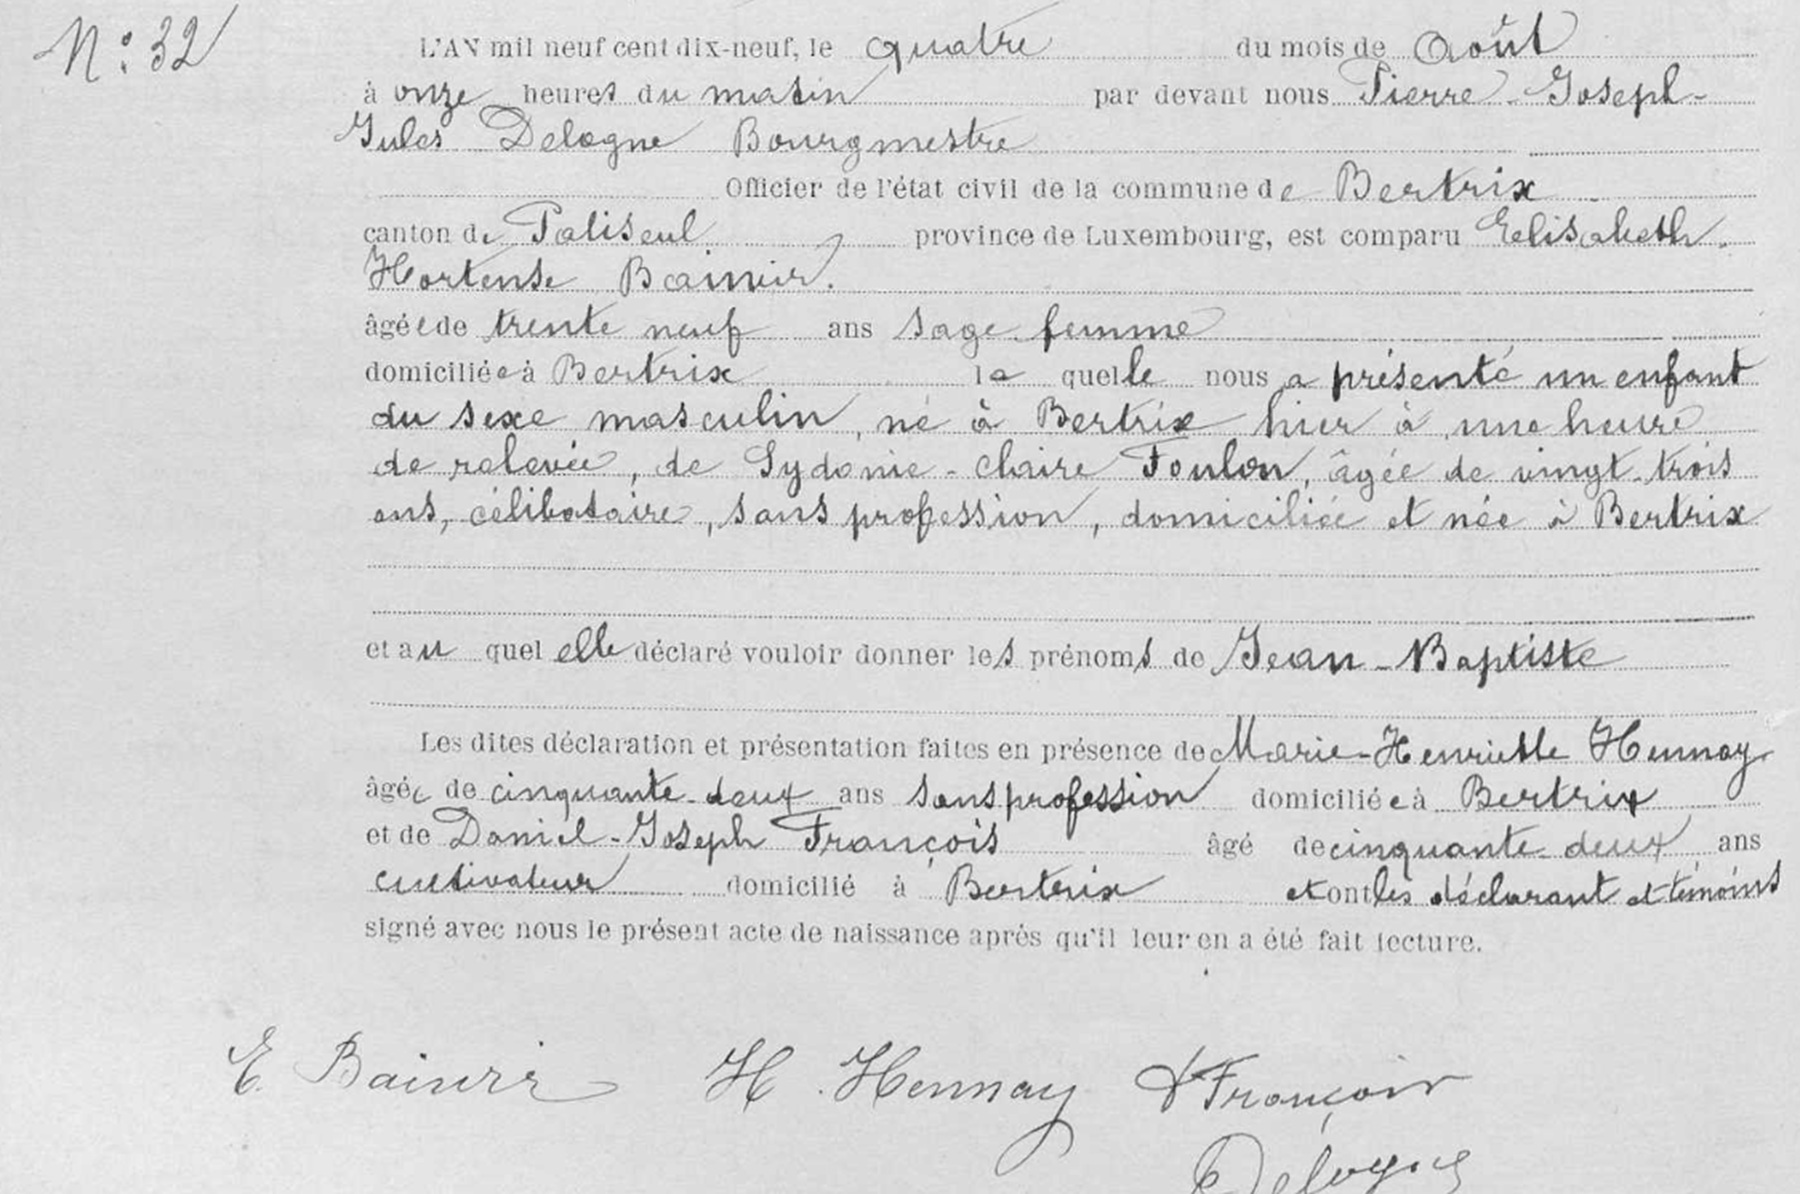 N°: 32
L'AN mil neuf cent dix-neuf, le quatre du mois de Août
à onze heures du matin par devant nous Pierre-Joseph-
Jules Delogne Bourgmestre
Officier de l'état civil de la commune de Bertrix
canton de Paliseul province de Luxembourg, est comparu Eelisabeth
Hortense Bainvir.
âgée de trente neuf ans sage femme
domiciliée à Bertrix la quelle nous a présenté un enfant
du sexe masculin, né à Bertrix hier à une heure
de relevée, de Sydonie-Claire Foulon, âgée de vingt-trois
ans, célibataire, sans profession, domiciliée et née à Bertrix
et au quel elle déclaré vouloir donner les prénoms de Jean-Baptiste
Les dites déclaration et présentation faites en présence de Marie-Henriette Hennay
âgée de cinquante-deux ans sans profession domiciliée à Bertrix
et de Daniel-Joseph François âgé de cinquante-deux ans
cultivateur domicilié à Bertrix et ont les déclarant et témoins
signé avec nous le présent acte de naissance après qu'il leur en a été fait lecture.
E. H. Hennay D François
Delogne